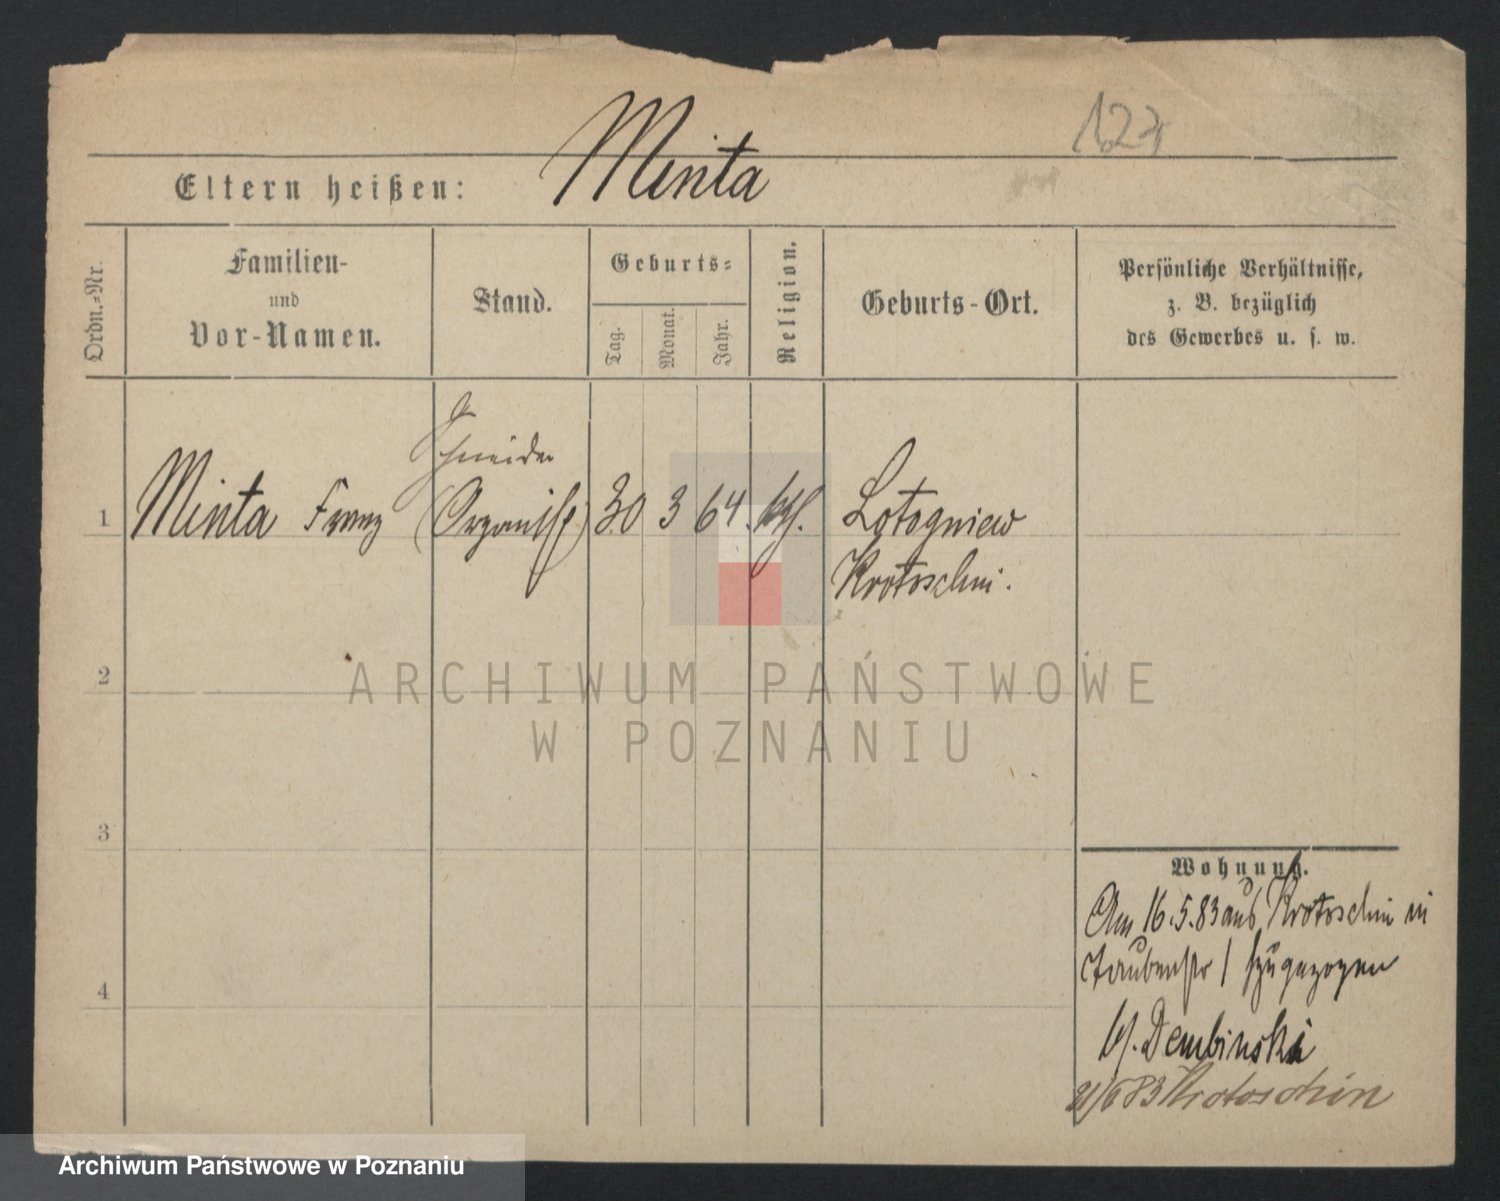 123
Eltern heißen: Minta
Ordn.=Nr.
Familien-
und
Vor-Namen.
Stand.
Geburts=
Tag.
Monat.
Jahr.
Religion.
Geburts-Ort.
Persönliche Verhältnisse,
z. B. bezüglich
des Gewerbes u. s. w.
Schneider
1 Minta Franz (Organist) 30 3 64. kth. Lotogniew
Krotoschin.
2
ARCHIWUM PAŃSTWOWE
W POZNANIU
3
4
Wohnung.
Am 16.5.83 aus Krotoschin in
Taubenstr 1 zugezogen
b/. Dembinski
/6 83 Krotoschin
Archiwum Państwowe w Poznaniu